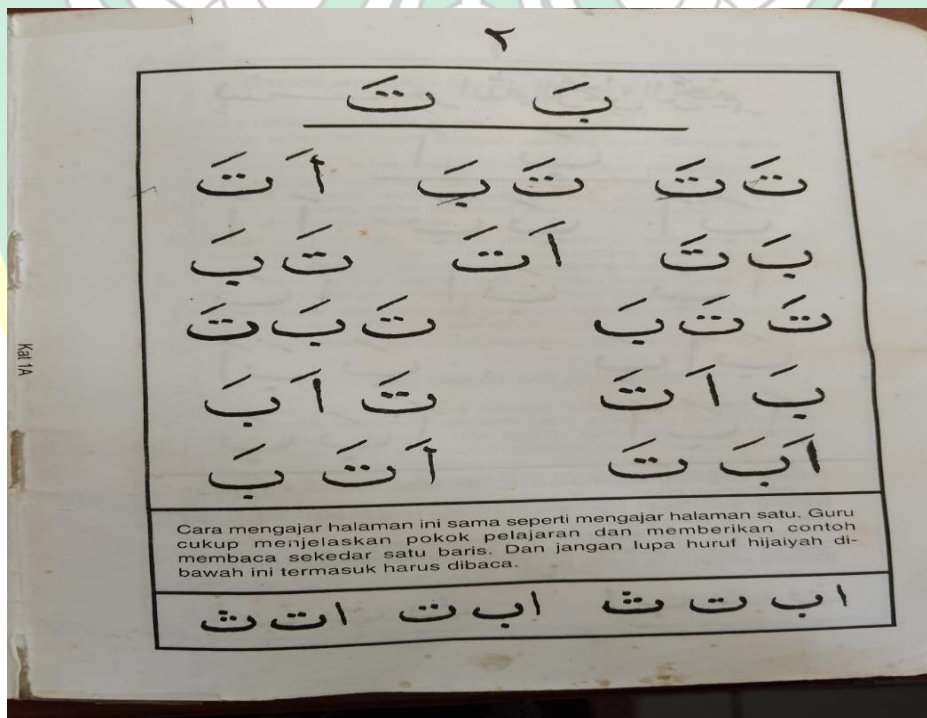 ٢
بَ تَ
تَ تَ تَ بَ اَ تَ
بَ تَ اَ تَ تَ بَ
تَ تَ بَ تَ بَ تَ
بَ اَ تَ تَ اَ بَ
اَ بَ تَ اَ تَ بَ
Cara mengajar halaman ini sama seperti mengajar halaman satu. Guru
cukup menjelaskan pokok pelajaran dan memberikan contoh
membaca sekedar satu baris. Dan jangan lupa huruf hijaiyah di-
bawah ini termasuk harus dibaca.
ا ب ت ث ا ب ت ا ت ث
Kat 1A